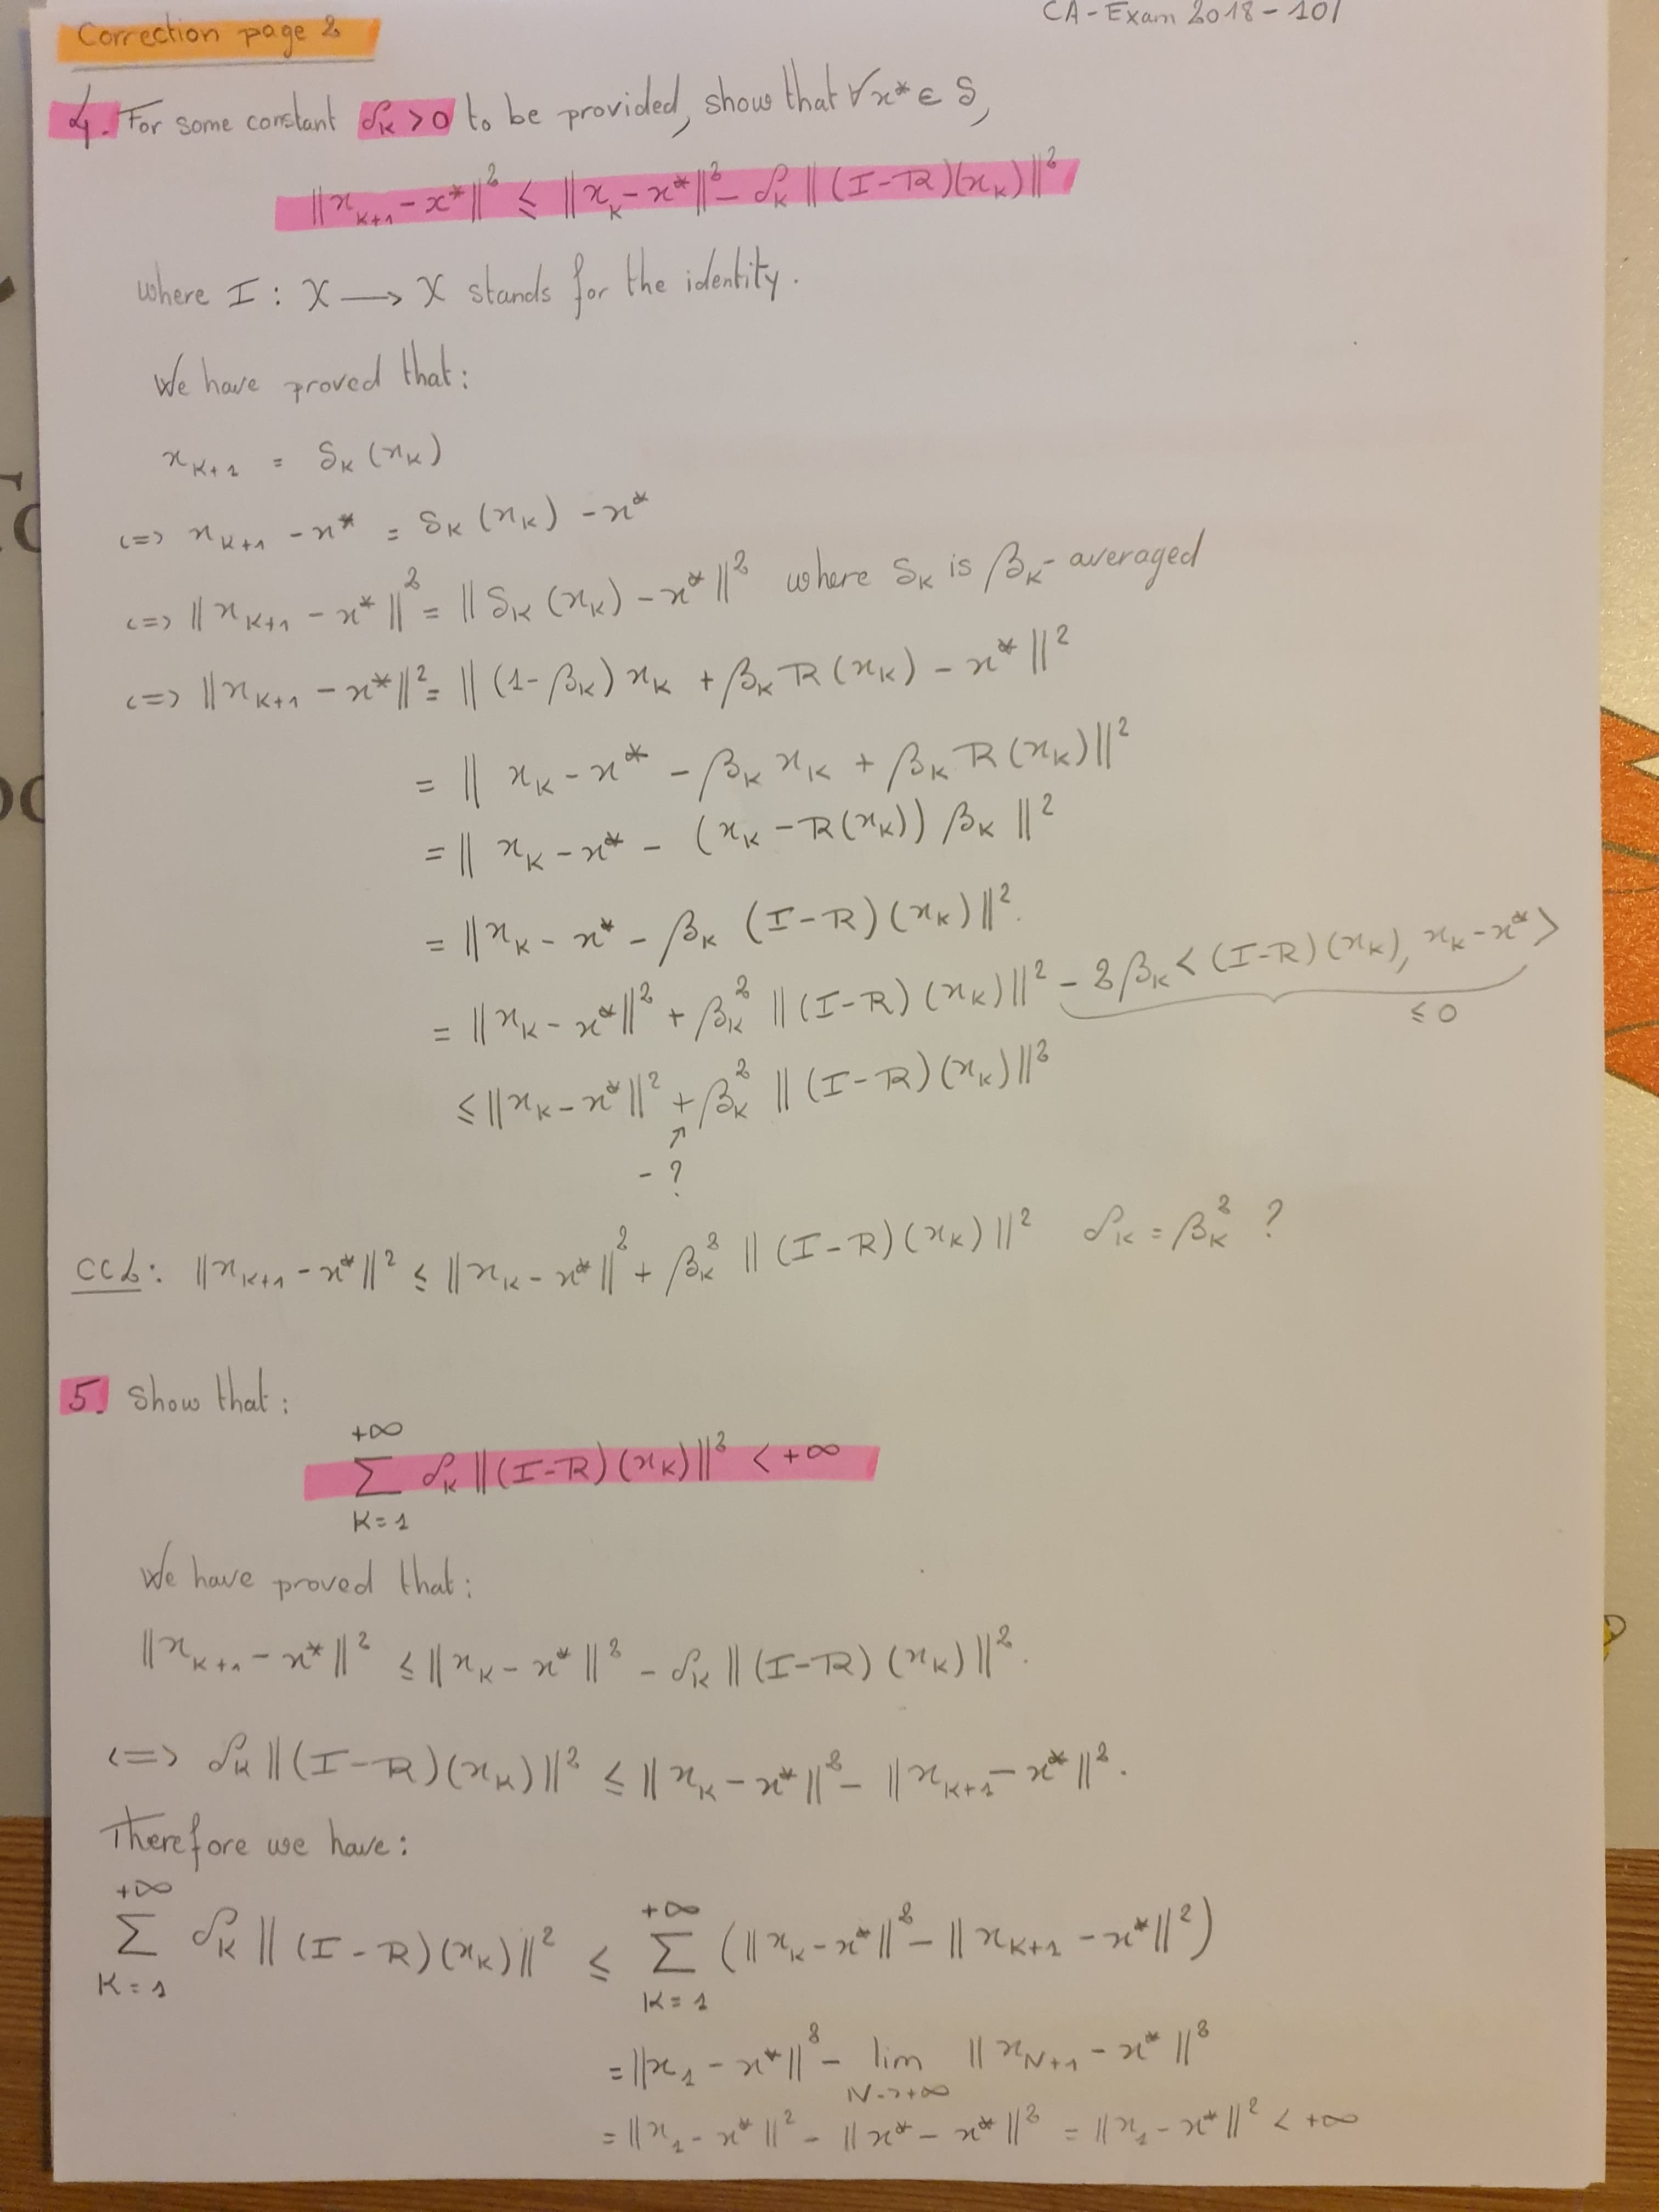 CA-Exam 2018-10/
Correction page 2
4. For some constant δ_K > 0 to be provided, show that ∀x* ∈ S,
||x_{K+1} - x*||² ≤ ||x_K - x*||² - δ_K ||(I-R)(x_K)||²
where I : X → X stands for the identity.
We have proved that:
x_{K+1} = S_K(x_K)
<=> x_{K+1} - x* = S_K(x_K) - x*
<=> ||x_{K+1} - x*||² = ||S_K(x_K) - x*||² where S_K is β_K-averaged
<=> ||x_{K+1} - x*||² = ||(1-β_K) x_K + β_K R(x_K) - x*||²
= ||x_K - x* - β_K x_K + β_K R(x_K)||²
= ||x_K - x* - (x_K - R(x_K)) β_K||²
= ||x_K - x* - β_K (I-R)(x_K)||².
= ||x_K - x*||² + β_K² ||(I-R)(x_K)||² - 2β_K <(I-R)(x_K), x_K - x*>
≤ 0
≤ ||x_K - x*||² + β_K² ||(I-R)(x_K)||²
↗
- ?
CCL: ||x_{K+1} - x*||² ≤ ||x_K - x*||² + β_K² ||(I-R)(x_K)||² δ_K = β_K² ?
5. Show that:
∑_{K=1}^{+∞} δ_K ||(I-R)(x_K)||² < +∞
We have proved that:
||x_{K+1} - x*||² ≤ ||x_K - x*||² - δ_K ||(I-R)(x_K)||².
<=> δ_K ||(I-R)(x_K)||² ≤ ||x_K - x*||² - ||x_{K+1} - x*||².
Therefore we have:
∑_{K=1}^{+∞} δ_K ||(I-R)(x_K)||² ≤ ∑_{K=1}^{+∞} (||x_K - x*||² - ||x_{K+1} - x*||²)
= ||x_1 - x*||² - lim_{N→+∞} ||x_{N+1} - x*||²
= ||x_1 - x*||² - ||x* - x*||² = ||x_1 - x*||² < +∞